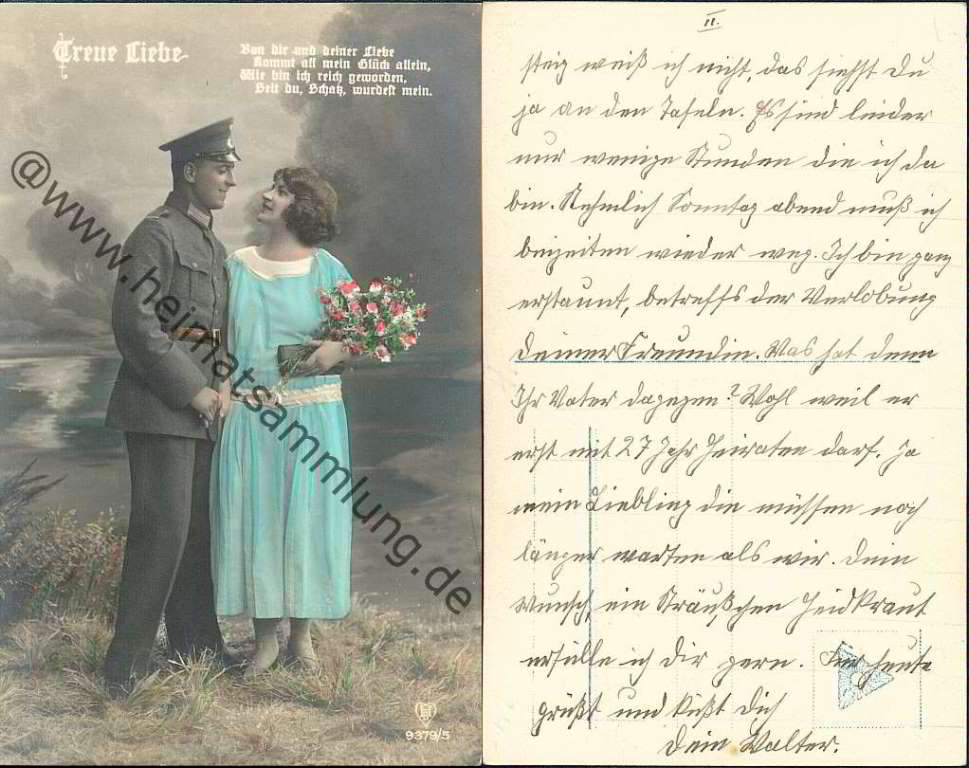 Treue Liebe
Von dir und deiner Liebe
Kommt all mein Glück allein,
Wie bin ich reich geworden,
Seit du, Schatz, wurdest mein.
@www.heimatsammlung.de
9379/5
II.
steig weiß ich nicht, das siehst Du
ja an den Tafeln. Es sind leider
nur wenige Stunden die ich da
bin. Nehmlich Sonntag abend muß ich
beizeiten wieder weg. Ich bin ganz
erstaunt, betreffs der Verlobung
Deiner Freundin. Was hat denn
Ihr Vater dagegen? Wohl weil er
erst mit 27 Jahr Heiraten darf. Ja
mein Liebling die müssen noch
länger warten als wir. Dein
Wunsch, ein Sträußchen Heidkraut
erfülle ich Dir gern. Für heute
grüßt und küßt Dich
Dein Walter.